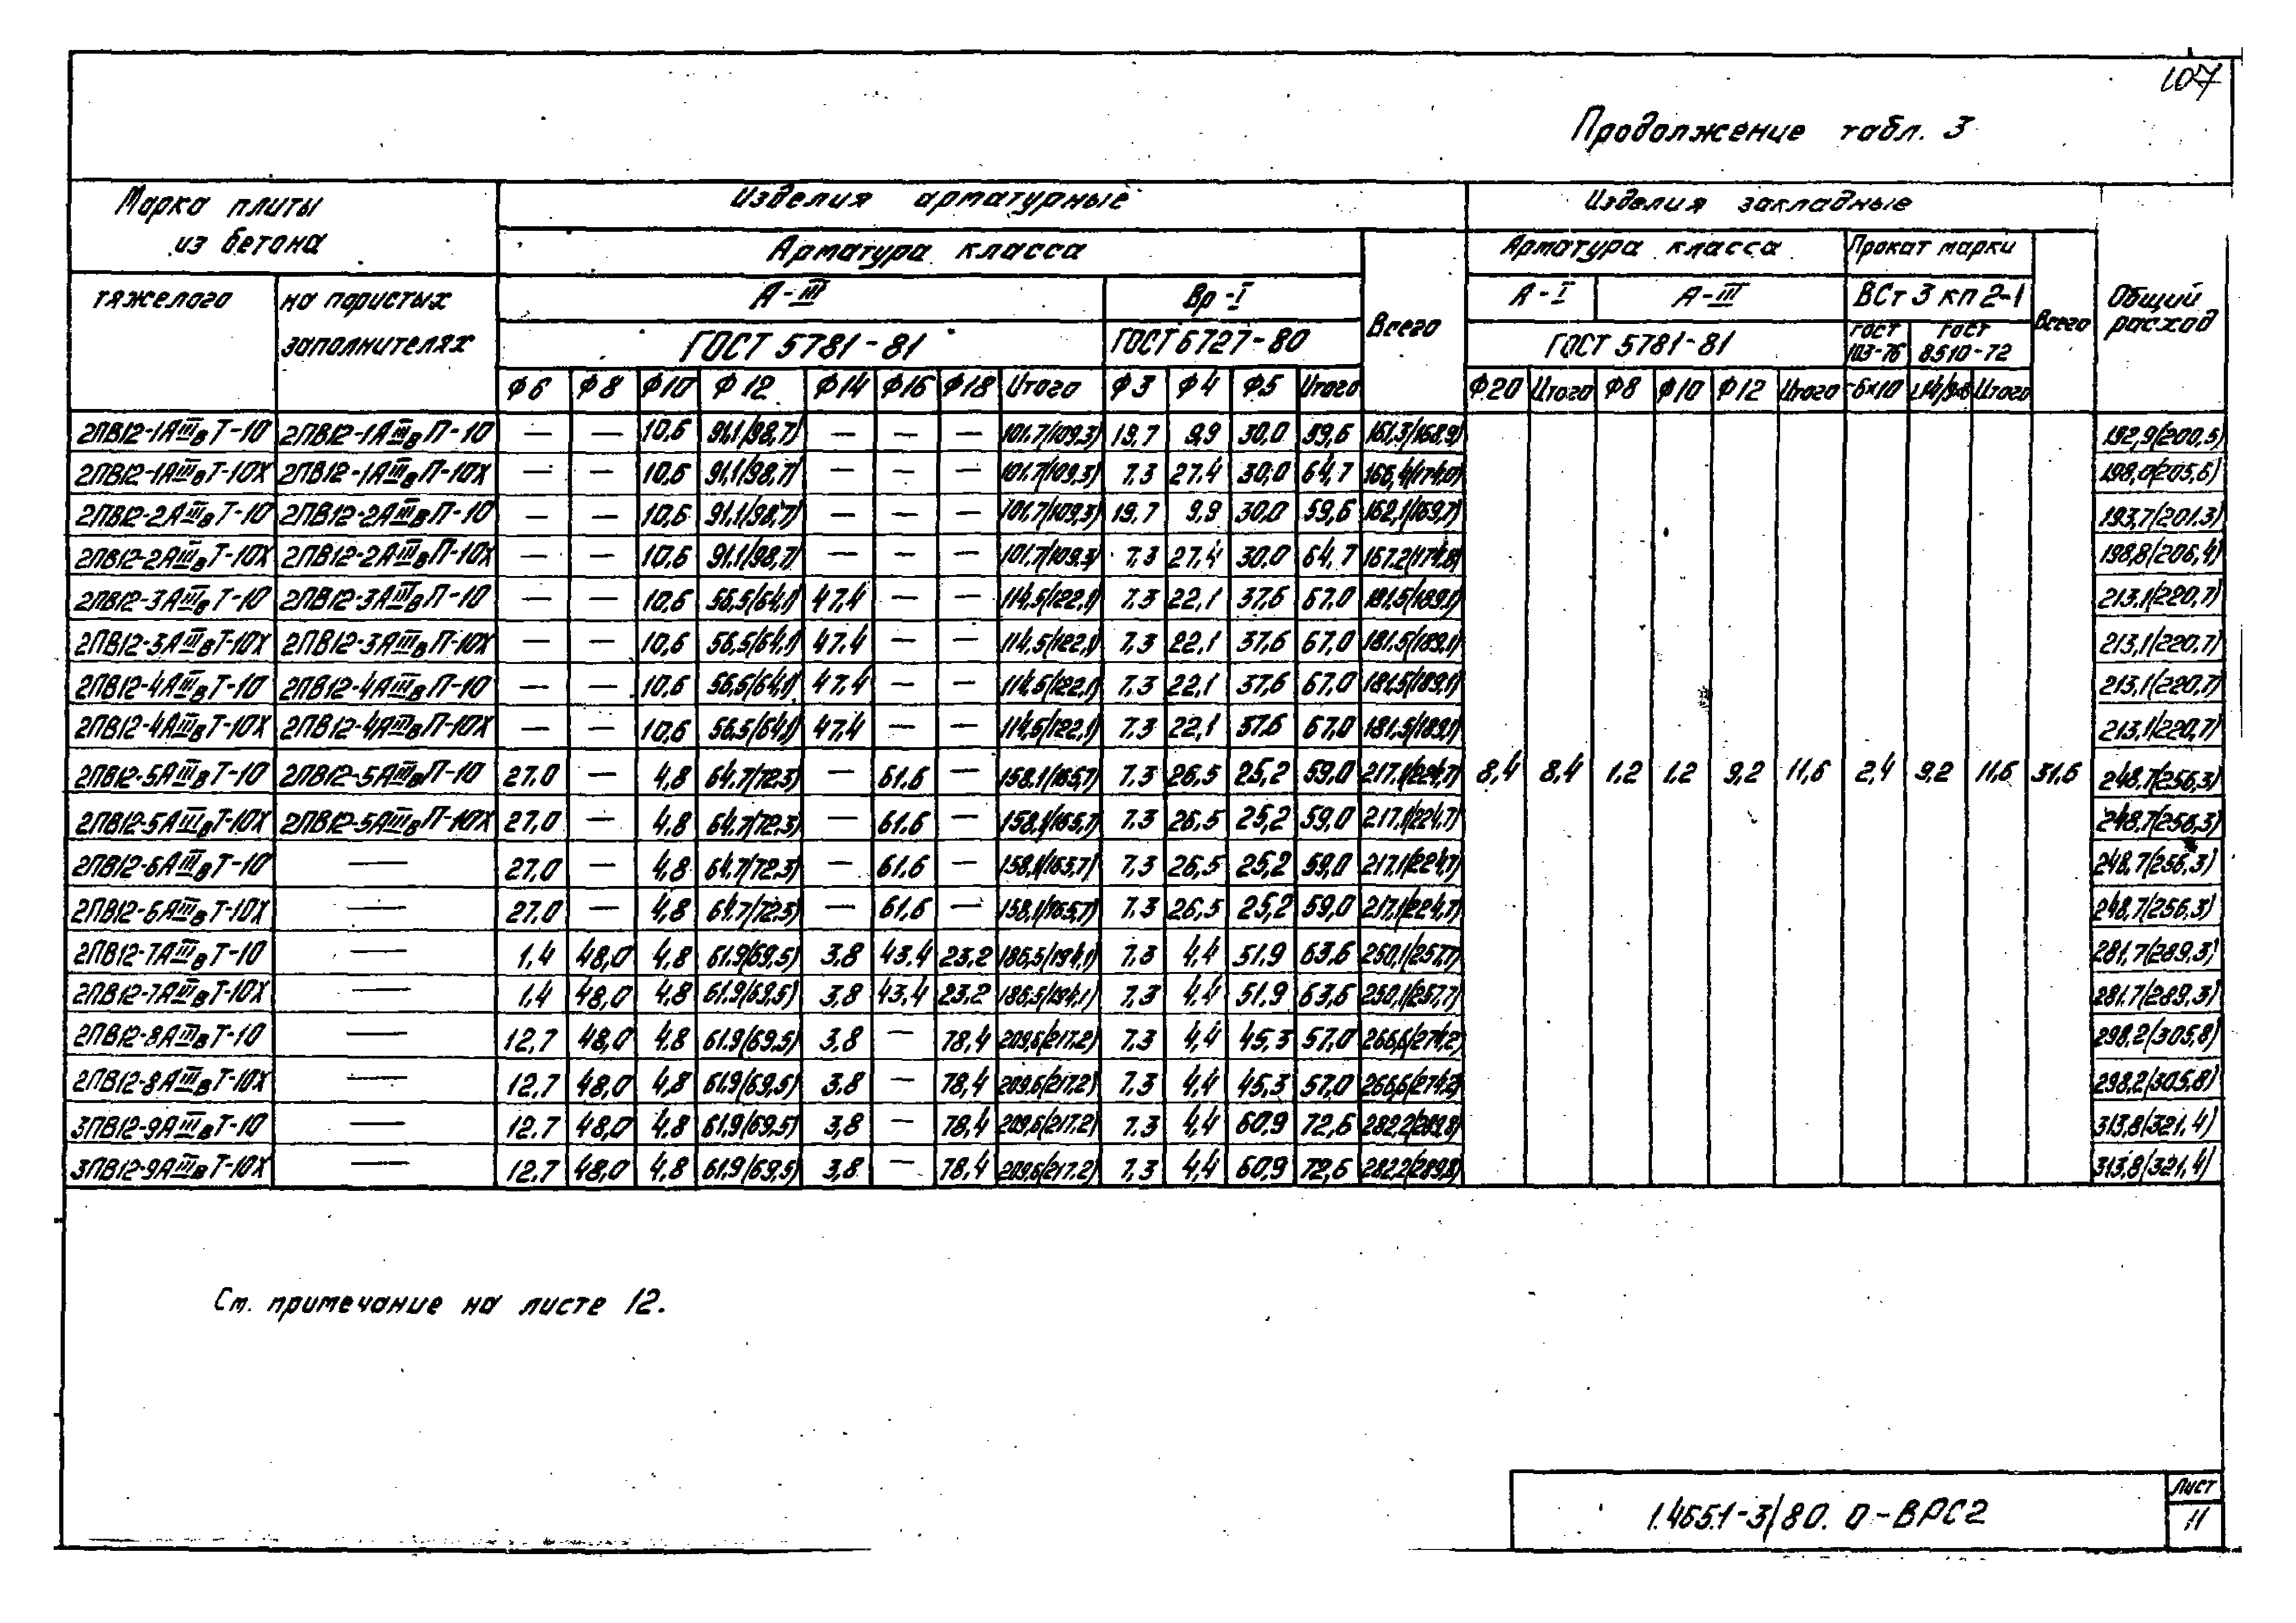 107
Продолжение табл. 3
Марка плиты из бетона
Изделия арматурные
Изделия закладные
Общий расход
Арматура класса
Всего
Арматура класса
Прокат марки
Всего
тяжелого
на пористых заполнителях
А-III
Вр-I
А-I
А-III
ВСт 3 кп 2-1
ГОСТ 5781-81
ГОСТ 6727-80
ГОСТ 5781-81
ГОСТ 103-76
ГОСТ 8510-72
Ф6 Ф8 Ф10 Ф12 Ф14 Ф16 Ф18 Итого Ф3 Ф4 Ф5 Итого Ф20 Итого Ф8 Ф10 Ф12 Итого б×10 Итого
2ПВ12-1АIIIвТ-10 2ПВ12-1АIIIвП-10 — — 10,6 91,1/98,7) — — — 101,7/109,3) 19,7 9,9 30,0 59,6 161,3/168,9) 192,9(200,5)
2ПВ12-1АIIIвТ-10Х 2ПВ12-1АIIIвП-10Х — — 10,6 91,1/98,7) — — — 101,7/109,3) 7,3 27,4 30,0 64,7 166,4(174,0) 198,0(205,6)
2ПВ12-2АIIIвТ-10 2ПВ12-2АIIIвП-10 — — 10,6 91,1/98,7) — — — 101,7/109,3) 19,7 9,9 30,0 59,6 162,1/169,7) 193,7(201,3)
2ПВ12-2АIIIвТ-10Х 2ПВ12-2АIIIвП-10Х — — 10,6 91,1/98,7) — — — 101,7/109,3) 7,3 27,4 30,0 64,7 167,2(174,8) 198,8(206,4)
2ПВ12-3АIIIвТ-10 2ПВ12-3АIIIвП-10 — — 10,6 56,5/64,1) 47,4 — — 114,5/122,1) 7,3 22,1 37,6 67,0 181,5/189,1) 213,1(220,7)
2ПВ12-3АIIIвТ-10Х 2ПВ12-3АIIIвП-10Х — — 10,6 56,5/64,1) 47,4 — — 114,5/122,1) 7,3 22,1 37,6 67,0 181,5/189,1) 213,1(220,7)
2ПВ12-4АIIIвТ-10 2ПВ12-4АIIIвП-10 — — 10,6 56,5/64,1) 47,4 — — 114,5/122,1) 7,3 22,1 37,6 67,0 181,5/189,1) 213,1(220,7)
2ПВ12-4АIIIвТ-10Х 2ПВ12-4АIIIвП-10Х — — 10,6 56,5/64,1) 47,4 — — 114,5/122,1) 7,3 22,1 37,6 67,0 181,5/189,1) 213,1(220,7)
2ПВ12-5АIIIвТ-10 2ПВ12-5АIIIвП-10 27,0 — 4,8 64,7/72,3) — 61,6 — 158,1/165,7) 7,3 26,5 25,2 59,0 217,1/224,7) 8,4 8,4 1,2 1,2 9,2 11,6 2,4 9,2 11,6 31,6 248,7(256,3)
2ПВ12-5АIIIвТ-10Х 2ПВ12-5АIIIвП-10Х 27,0 — 4,8 64,7/72,3) — 61,6 — 158,1/165,7) 7,3 26,5 25,2 59,0 217,1/224,7) 248,7(256,3)
2ПВ12-6АIIIвТ-10 — 27,0 — 4,8 64,7/72,3) — 61,6 — 158,1/165,7) 7,3 26,5 25,2 59,0 217,1/224,7) 248,7(256,3)
2ПВ12-6АIIIвТ-10Х — 27,0 — 4,8 64,7/72,3) — 61,6 — 158,1/165,7) 7,3 26,5 25,2 59,0 217,1/224,7) 248,7(256,3)
2ПВ12-7АIIIвТ-10 — 1,4 48,0 4,8 61,9/69,5) 3,8 43,4 23,2 186,5/194,1) 7,3 4,4 51,9 63,6 250,1/257,7) 281,7(289,3)
2ПВ12-7АIIIвТ-10Х — 1,4 48,0 4,8 61,9/69,5) 3,8 43,4 23,2 186,5/194,1) 7,3 4,4 51,9 63,6 250,1/257,7) 281,7(289,3)
2ПВ12-8АIIIвТ-10 — 12,7 48,0 4,8 61,9/69,5) 3,8 — 78,4 209,6/217,2) 7,3 4,4 45,3 57,0 266,6/274,2) 298,2(305,8)
2ПВ12-8АIIIвТ-10Х — 12,7 48,0 4,8 61,9/69,5) 3,8 — 78,4 209,6/217,2) 7,3 4,4 45,3 57,0 266,6/274,2) 298,2(305,8)
3ПВ12-9АIIIвТ-10 — 12,7 48,0 4,8 61,9/69,5) 3,8 — 78,4 209,6/217,2) 7,3 4,4 60,9 72,6 282,2/289,8) 313,8(321,4)
3ПВ12-9АIIIвТ-10Х — 12,7 48,0 4,8 61,9/69,5) 3,8 — 78,4 209,6/217,2) 7,3 4,4 60,9 72,6 282,2/289,8) 313,8(321,4)
См. примечание на листе 12.
1.465.1-3/80. 0-ВРС2
Лист
11